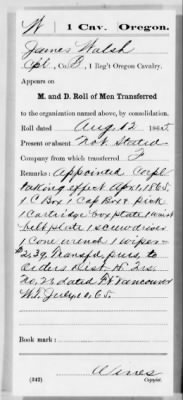 W | 1 Cav. | Oregon.
James Walsh
Cpl, Co. B, 1 Reg't Oregon Cavalry.
Appears on
M. and D. Roll of Men Transferred
to the organization named above, by consolidation.
Roll dated Aug 12, 1865.
Present or absent Not Stated
Company from which transferred F
Remarks: Appointed Corpl
taking effect Apr 1, 1865.
1 C Box 1 Cap Box & pick
1 Cartridge box plate 1 waist
belt plate 1 screwdriver
1 Cone wrench 1 wiper
$2.39. Transfd, purs. to
Orders Dist. Hd Qrs
No. 23 dated Ft Vancouver
W.T. July 10, 65.
Book mark:
(343)
Copyist.